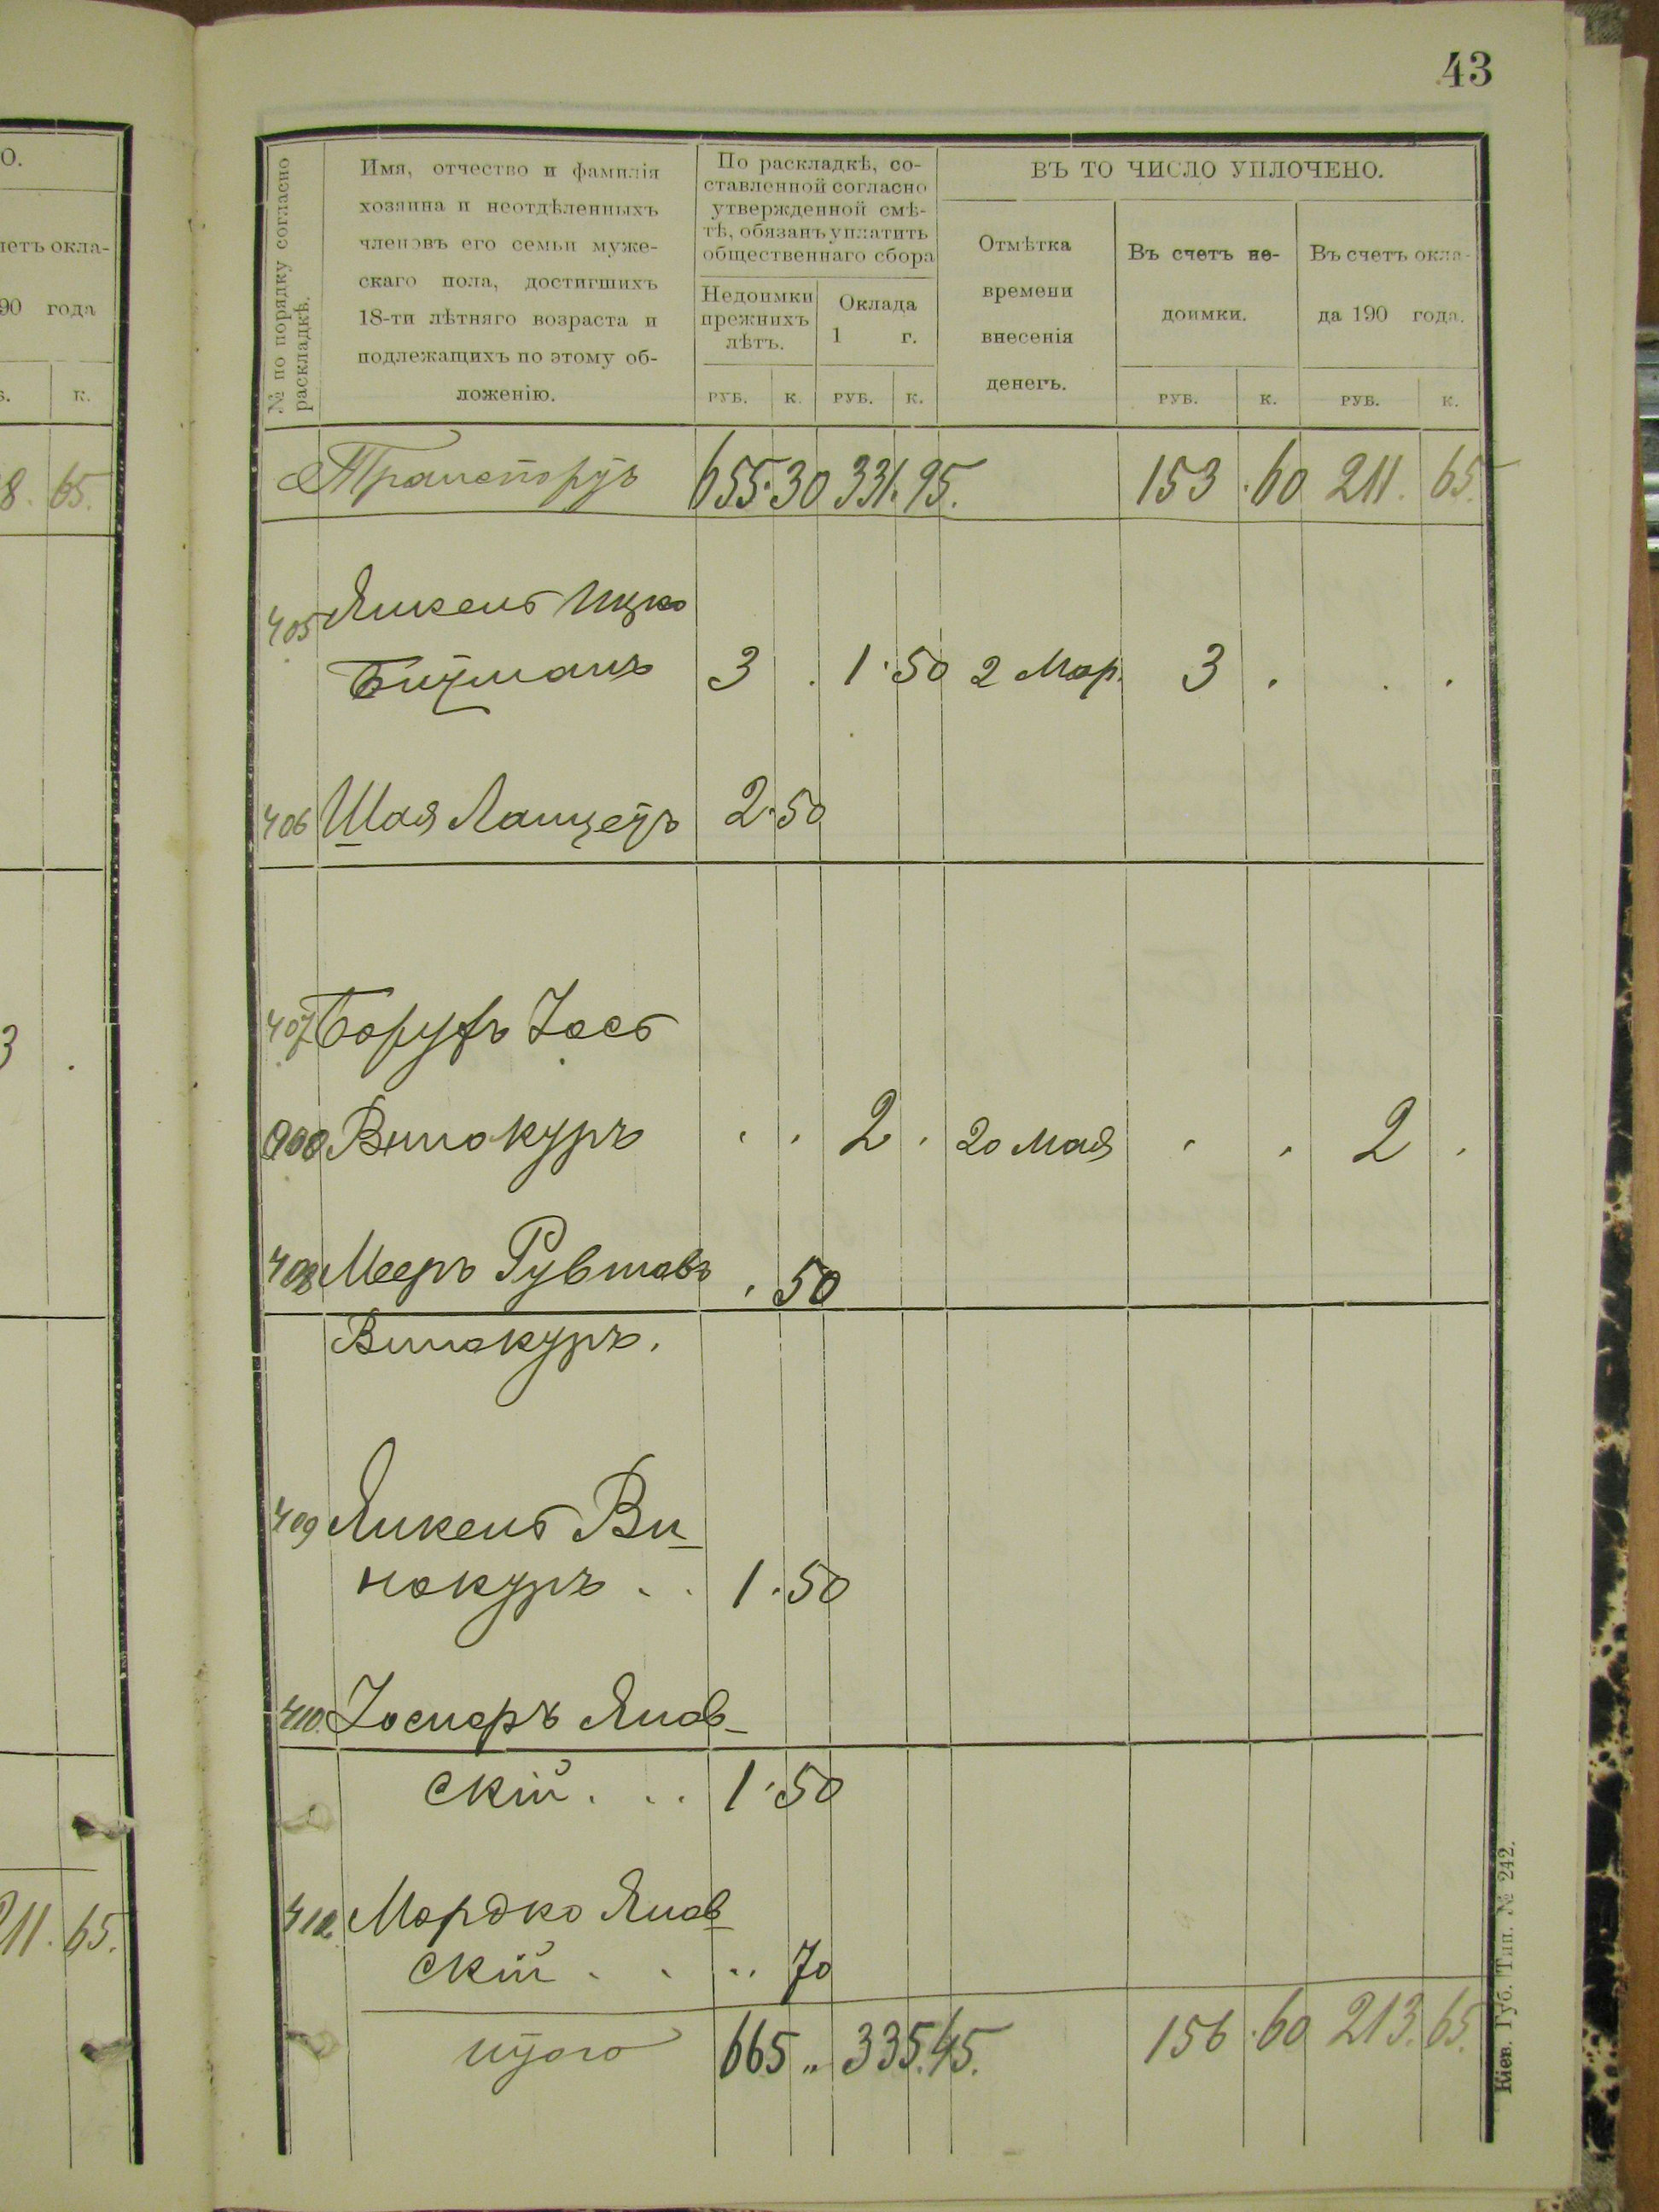 43
О.
четъ окла-
90 года
к.
8. 65.
3 .
211. 65.
№ по порядку согласно
раскладкѣ.
Имя, отчество и фамилія
хозяина и неотдѣленныхъ
членовъ его семьи муже-
скаго пола, достигшихъ
18-ти лѣтняго возраста и
подлежащихъ по этому об-
ложенію.
По раскладкѣ, со-
ставленной согласно
утвержденной смѣ-
тѣ, обязанъ уплатить
общественнаго сбора
Недоимки
прежнихъ
лѣтъ.
Оклада
1 г.
РУБ. К. РУБ. К.
ВЪ ТО ЧИСЛО УПЛОЧЕНО.
Отмѣтка
времени
внесенія
денегъ.
Въ счетъ не-
доимки.
Въ счетъ окла-
да 190 года.
РУБ. К. РУБ. К.
Транспортъ 655.30 331.95. 153.60 211.65.
405 Янкель Ицко
Битманъ 3 . 1.50 2 Мар. 3 . . .
406 Шая Ланцетъ 2.50
407 Борухъ Іось
Винокуръ . . 2 . 20 Мая . . 2 .
408 Мееръ Рувиновъ . 50
Винокуръ.
409 Янкель Ви-
нокуръ . . 1.50
410. Янов-
скій . . . 1.50
Мордко Янов-
скій . . .. 70
итого 665 „ 335.45. 156.60 213.65.
Кіев. Губ. Тип. № 242.